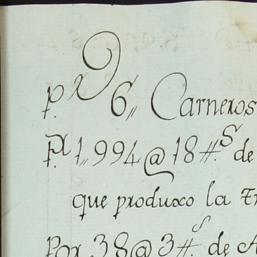 p.r 6,, Carneros
P.r 1,,994@ 18#.s de
que produxo la tr
Por 38@ 3#.s de A